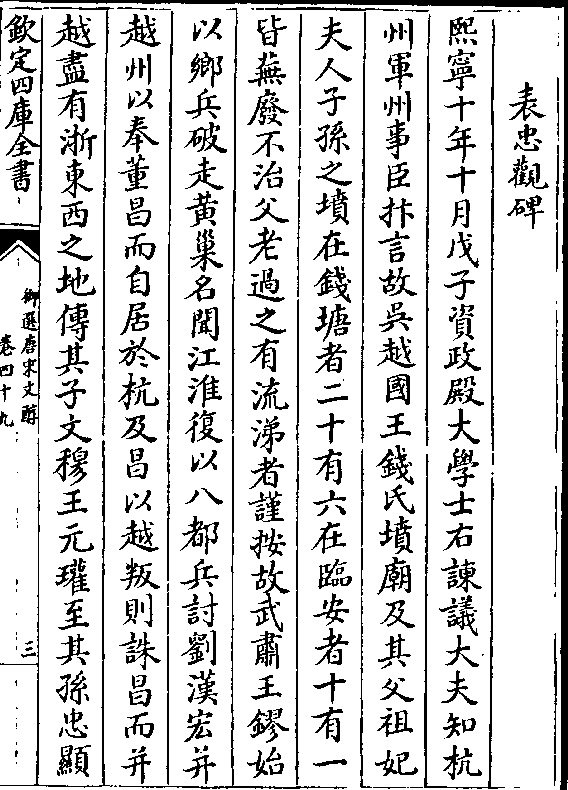 表忠觀碑
熙寧十年十月戊子資政殿大學士右諫議大夫知杭
州軍州事臣抃言故吳越國王錢氏墳廟及其父祖妃
夫人子孫之墳在錢塘者二十有六在臨安者十有一
皆蕪廢不治父老過之有流涕者謹按故武肅王鏐始
以鄉兵破走黃巢名聞江淮復以八都兵討劉漢宏并
越州以奉董昌而自居於杭及昌以越叛則誅昌而并
越盡有浙東西之地傳其子文穆王元瓘至其孫忠顯
欽定四庫全書
御選唐宋文醇
卷四十九
三